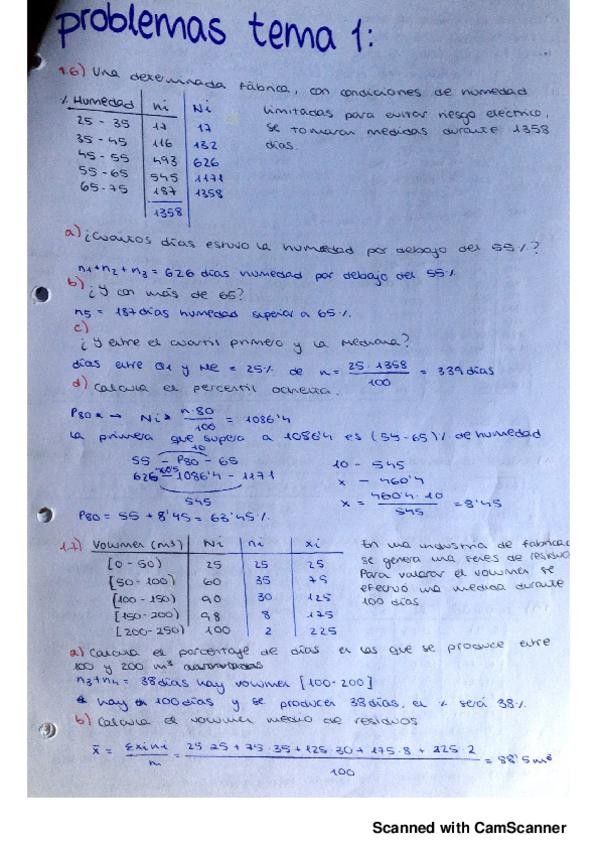 problemas tema 1:
1.6) Una determinada fábrica, con condiciones de humedad
limitadas para evitar riesgo eléctrico,
se tomaran medidas durante 1358
días.
% Humedad ni Ni
25 - 35 17 17
35 - 45 116 132
45 - 55 493 626
55 - 65 545 1171
65 - 75 187 1358
1358
a) ¿Cuántos días estuvo la humedad por debajo del 55%?
n1+n2+n3 = 626 días humedad por debajo del 55%
b) ¿Y con más de 65?
n5 = 187 días humedad superior a 65%.
c)
¿Y entre el cuartil primero y la mediana?
días entre Q1 y Me = 25% de n = 25·1358 / 100 = 339 días
d) Calcula el percentil ochenta.
P80 → Ni > n·80 / 100 = 1086'4
la primera que supera a 1086'4 es (55-65)% de humedad
10
55 - P80 - 65
626 - 1086'4 - 1171
545
10 - 545
x - 460'4
x = 460'4·10 / 545 = 8'45
P80 = 55 + 8'45 = 63'45%
1.7) Volumen (m³) Ni ni xi
[0 - 50) 25 25 25
[50 - 100) 60 35 75
[100 - 150) 90 30 125
[150 - 200) 98 8 175
[200 - 250) 100 2 225
En una industria de
se genera una series de
Para valorar el volumen se
efectuó una medida durante
100 días
a) Calcula el porcentaje de días en las que se produce entre
100 y 200 m³
n3+n4 = 38 días hay volumen [100-200]
hay 100 días y se producen 38 días, el % será 38%
b) Calcula el volumen medio de residuos
x̄ = Σxini / n = 25·25 + 75·35 + 125·30 + 175·8 + 225·2 / 100 = 88'5 m³
Scanned with CamScanner